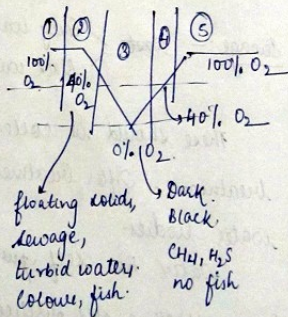 ① ② ③ ④ ⑤
100%
O₂
40%
O₂
100% O₂
40% O₂
0% O₂
floating solids,
sewage,
turbid water,
colour, fish.
Dark.
Black.
CH₄, H₂S
no fish